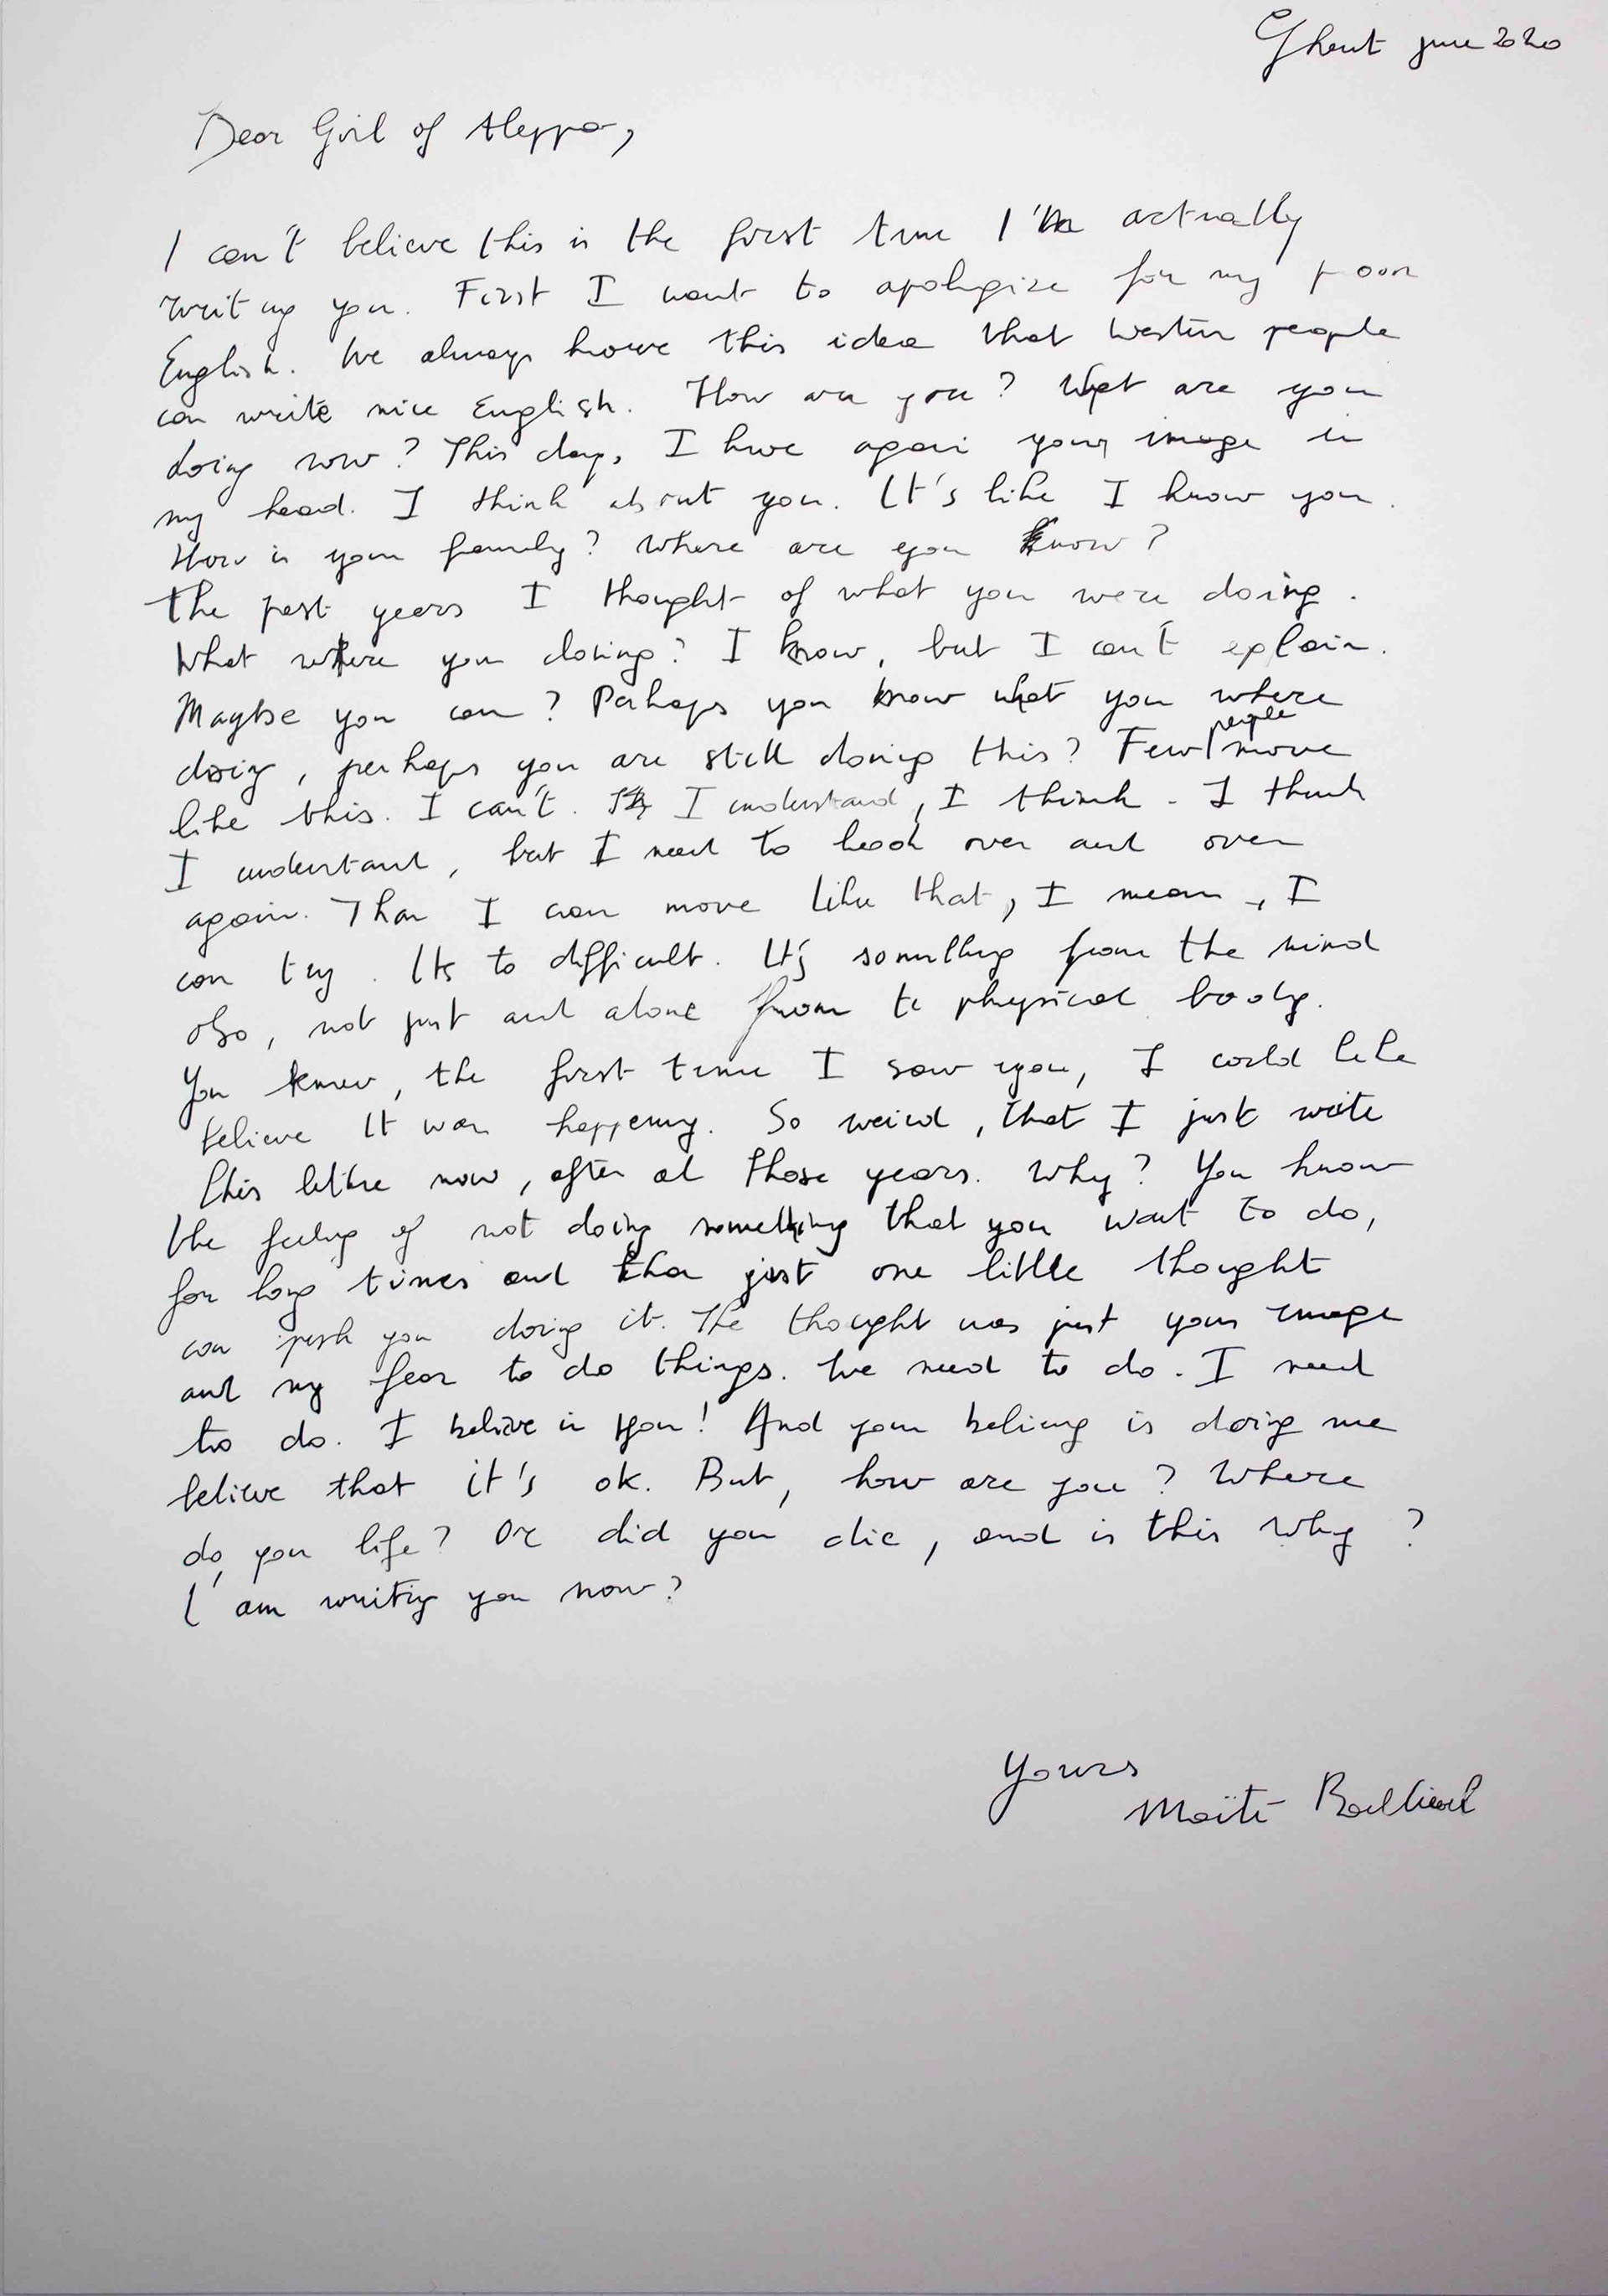 Ghent june 2020
Dear Girl of Aleppo,
I can't believe this is the first time I'm actually
writing you. First I want to apologize for my poor
English. We always have this idea that Western people
can write nice English. How are you? What are you
doing now? This days, I have again your image in
my head. I think about you. It's like I know you.
How is your family? Where are you know?
The past years I thought of what you were doing.
What where you doing? I know, but I can't explain.
Maybe you can? Perhaps you know what you where
doing, perhaps you are still doing this? Few people move
like this. I can't. I understand, I think - I think
I understand, but I need to look over and over
again. Than I can move like that, I mean, I
can try. Its to difficult. It's something from the mind
also, not just and alone from te physical body.
You know, the first time I saw you, I could
believe it was happening. So weird, that I just write
this lettre now, after al those years. Why? You know
the feeling of not doing something that you want to do,
for long times and than just one little thought
can push you doing it. The thought was just your image
and my fear to do things. We need to do. I need
to do. I believe in you! And your believing is doing me
believe that it's ok. But, how are you? Where
do you life? Or did you die, and is this why?
I am writing you now?
Yours
Maïté